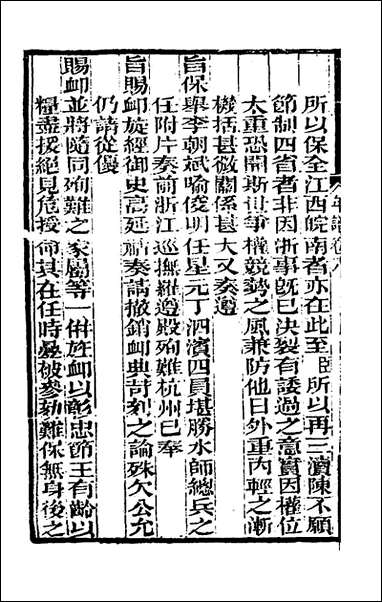 所以保全江西皖南者亦在此至臣所以再三瀆陳不願
節制四省者非因浙事旣已決裂有諉過之意實因權位
太重恐開斯世爭權競勢之風兼防他日外重內輕之漸
機括甚微關係甚大又奏遵
旨保舉李朝斌喻俊明任星元丁泗濱四員堪勝水師總兵之
任附片奏前浙江巡撫羅遵殿殉難杭州已奉
旨賜卹旋經御史高延祜奏請撤銷卹典苛刻之論殊欠公允
仍請從優
賜卹並將隨同殉難之家屬等一併旌卹以彰忠節王有齡以
糧盡援絕見危授命其在任時疊被參劾難保無身後之